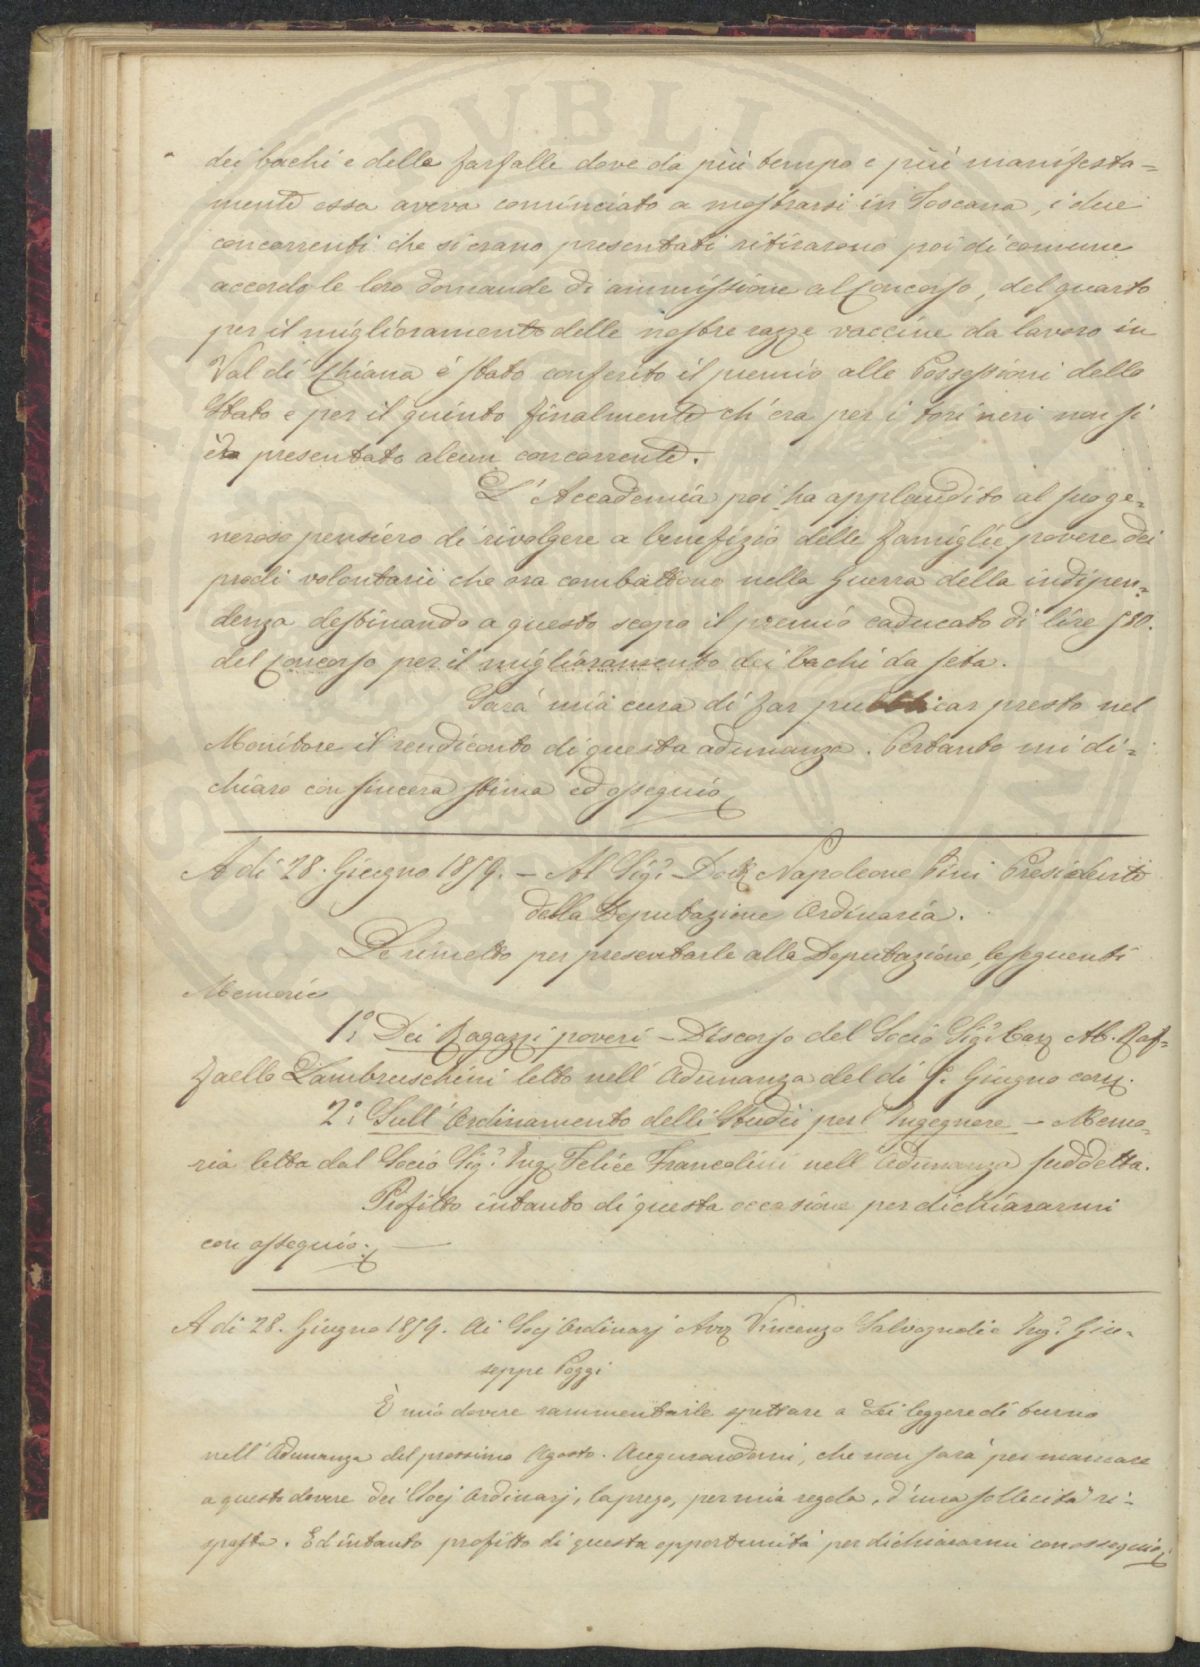 dei bachi e delle farfalle dove da più tempo e più manifesta=
mente essa aveva cominciato a mostrarsi in Toscana, i due
concorrenti che si erano presentati ritirarono poi di comune
accordo le loro domande di ammissione al Concorso, del quarto
per il miglioramento delle nostre razze vaccine da lavoro in
Val di Chiana è stato conferito il premio alle Possessioni dello
Stato e per il quinto finalmente ch'era per i tori neri non si
è presentato alcun concorrente.
L'Accademia poi ha applaudito al suo ge=
neroso pensiero di rivolgere a benefizio delle famiglie povere dei
prodi volontarii che ora combattono nella Guerra della indipen=
denza destinando a questo scopo il premio caducato di lire 580.
del Concorso per il miglioramento dei bachi da seta.
Sarà mia cura di far pubblicar presto nel
Monitore il rendiconto di questa adunanza. Pertanto mi di=
chiaro con sincera stima ed ossequio
A dì 28. Giugno 1859. - Al Sig.r Dott. Napoleone Pini Presidente
della Deputazione Ordinaria.
Le rimetto per presentarle alla Deputazione, le seguenti
Memorie
1.° Dei Ragazzi poveri - Discorso del Socio Sig.r Cav. Ab. Raf=
faello Lambruschini letto nell'Adunanza del dì 5. Giugno corr.
2.° Sull'Ordinamento delli Studii per l'Ingegnere - Memo=
ria letta dal Socio Sig.r Ing. Felice Francolini nell'Adunanza suddetta.
Profitto intanto di questa occasione per dichiararmi
con ossequio.
A dì 28. Giugno 1859. Ai Socj Ordinarj Avv. Vincenzo Salvagnoli e Ing.r Giu=
seppe Poggi
È mio dovere rammentarle spettare a Lei leggere di turno
nell'Adunanza del prossimo Agosto. Augurandomi, che non sarà per mancare
a questo dovere dei Socj Ordinarj, la prego, per mia regola, d'una sollecita ri=
sposta. Ed intanto profitto di questa opportunità per dichiararmi con ossequio